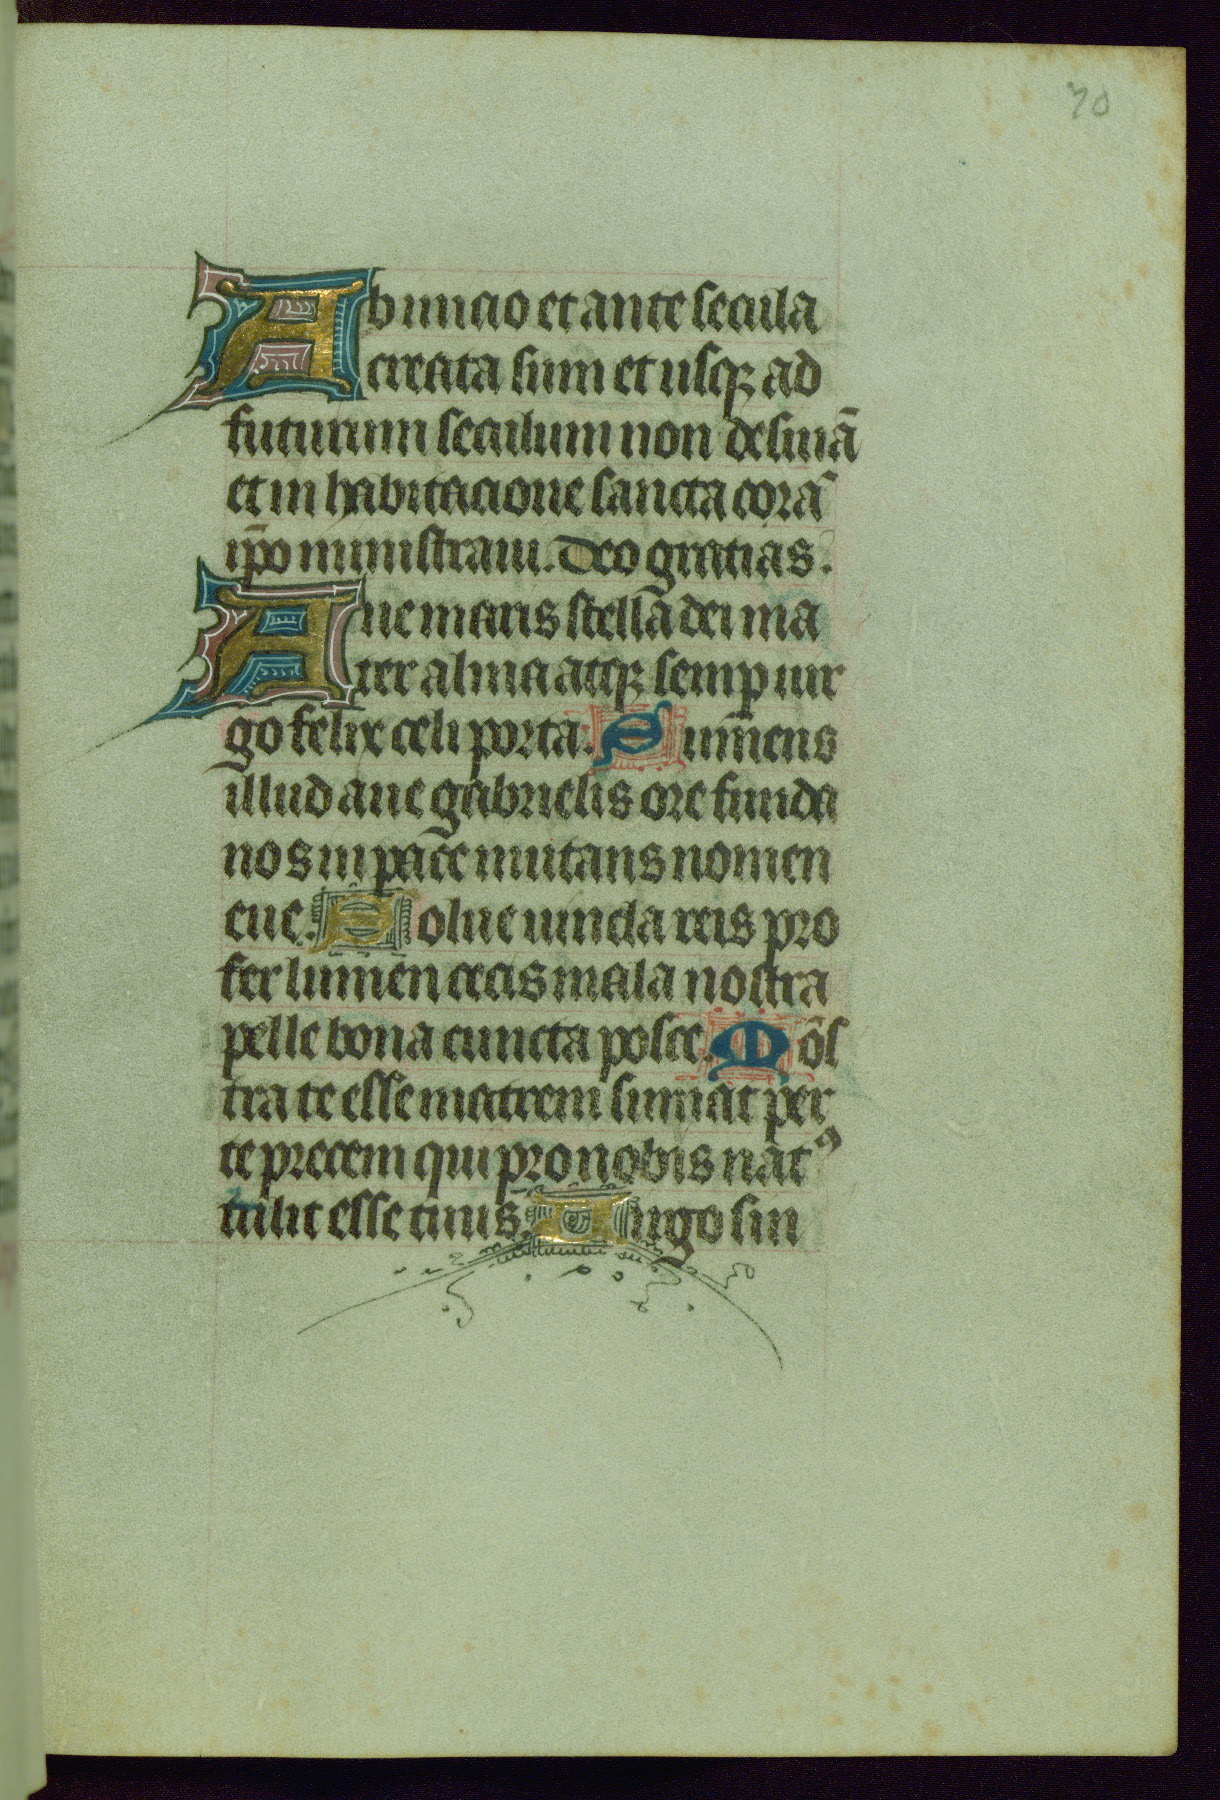 70
Ab inicio et ante secula
creata sum et usqꝫ ad
futurum seculum non desinā
et in habitacione sancta corā
ip̄o ministraui. Deo gratias.
Aue maris stella dei ma
ter alma atqꝫ semꝑ uir
go felix celi porta. Sum̄ens
illud aue gabrielis ore funda
nos in pace mutans nomen
eue. Solue uincla reis pro
fer lumen cecis mala nostra
pelle bona cuncta posce. Mōs
tra te esse matrem sumat per
te precem qui pro nobis natꝰ
tulit esse tuus. Uirgo sin